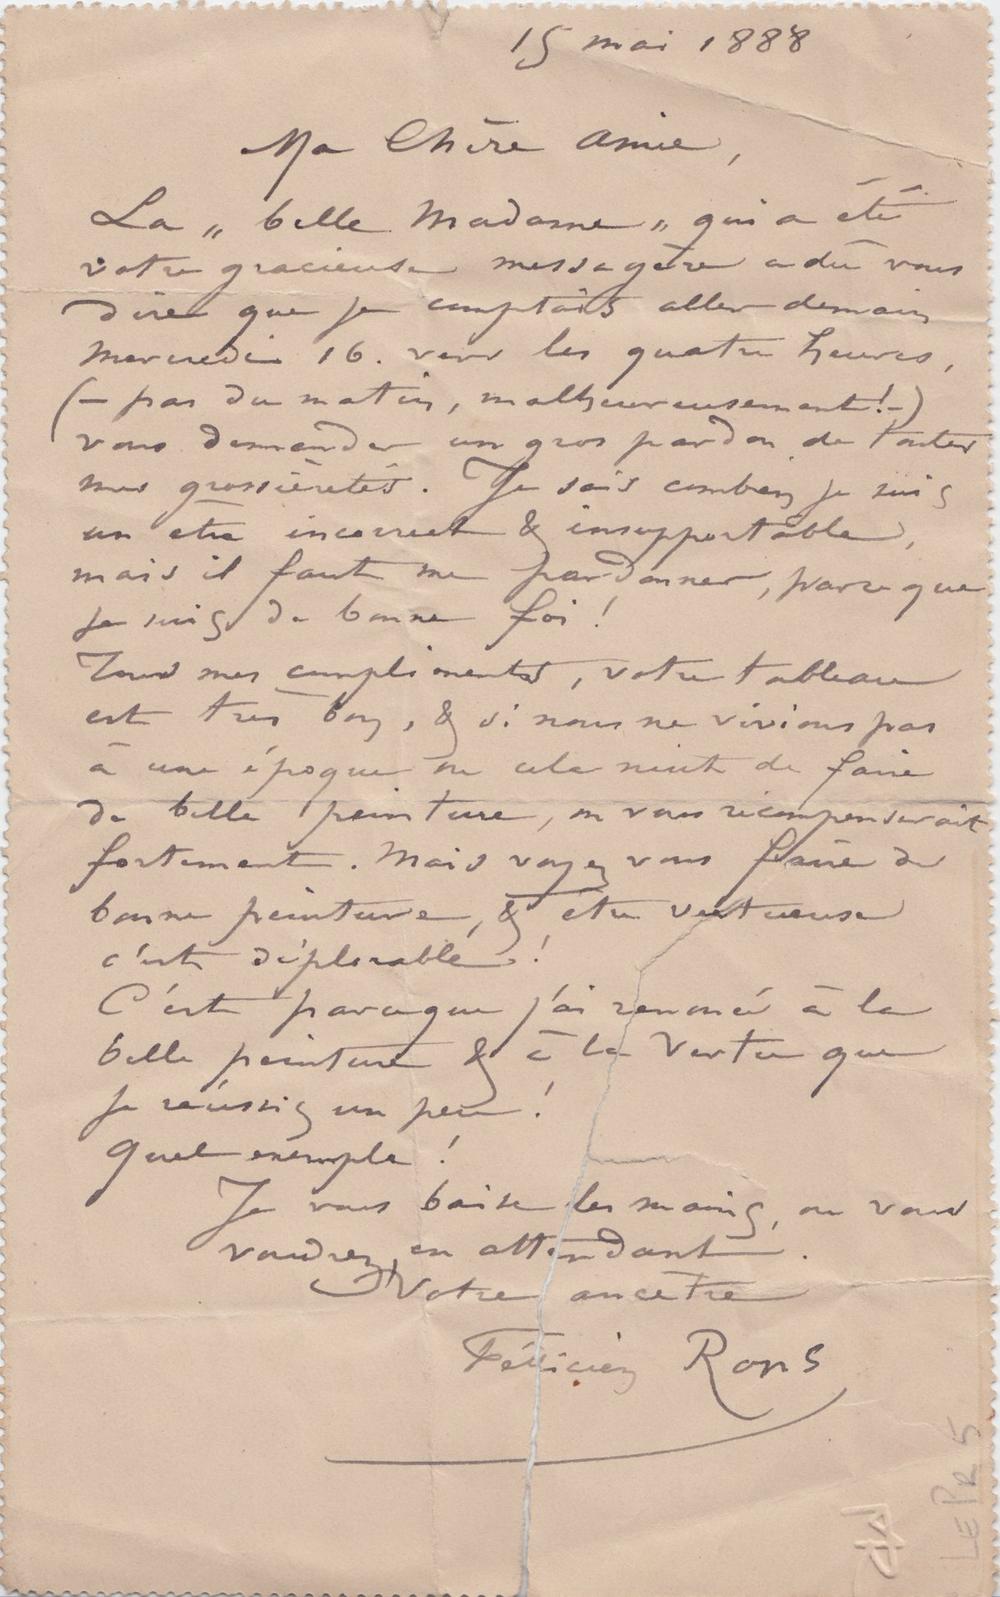 15 mai 1888
Ma Chère Amie,
La „ belle Madame „ qui a été
votre gracieuse messagère a dû vous
dire que je comptais aller demain
Mercredi 16. vers les quatre heures,
(– pas du matin, malheureusement! –)
vous demander un gros pardon de toutes
mes grossièretés. Je sais combien je suis
un être incorrect & insupportable,
mais il faut me pardonner, parceque
je suis de bonne foi !
Tous mes compliments, votre tableau
est très bon, & si nous ne vivions pas
à une époque ou cela nuit de faire
de belle peinture, on vous récompenserait
fortement. Mais voyez vous faire de
bonne peinture, & être vertueuse
c'est déplorable !
C'est parceque j'ai renoncé à la
belle peinture & à la Vertu que
je réussis un peu !
Quel exemple !
Je vous baise les mains, ou vous
voudrez, en attendant.
Votre ancêtre
Félicien Rops
LEPR 5